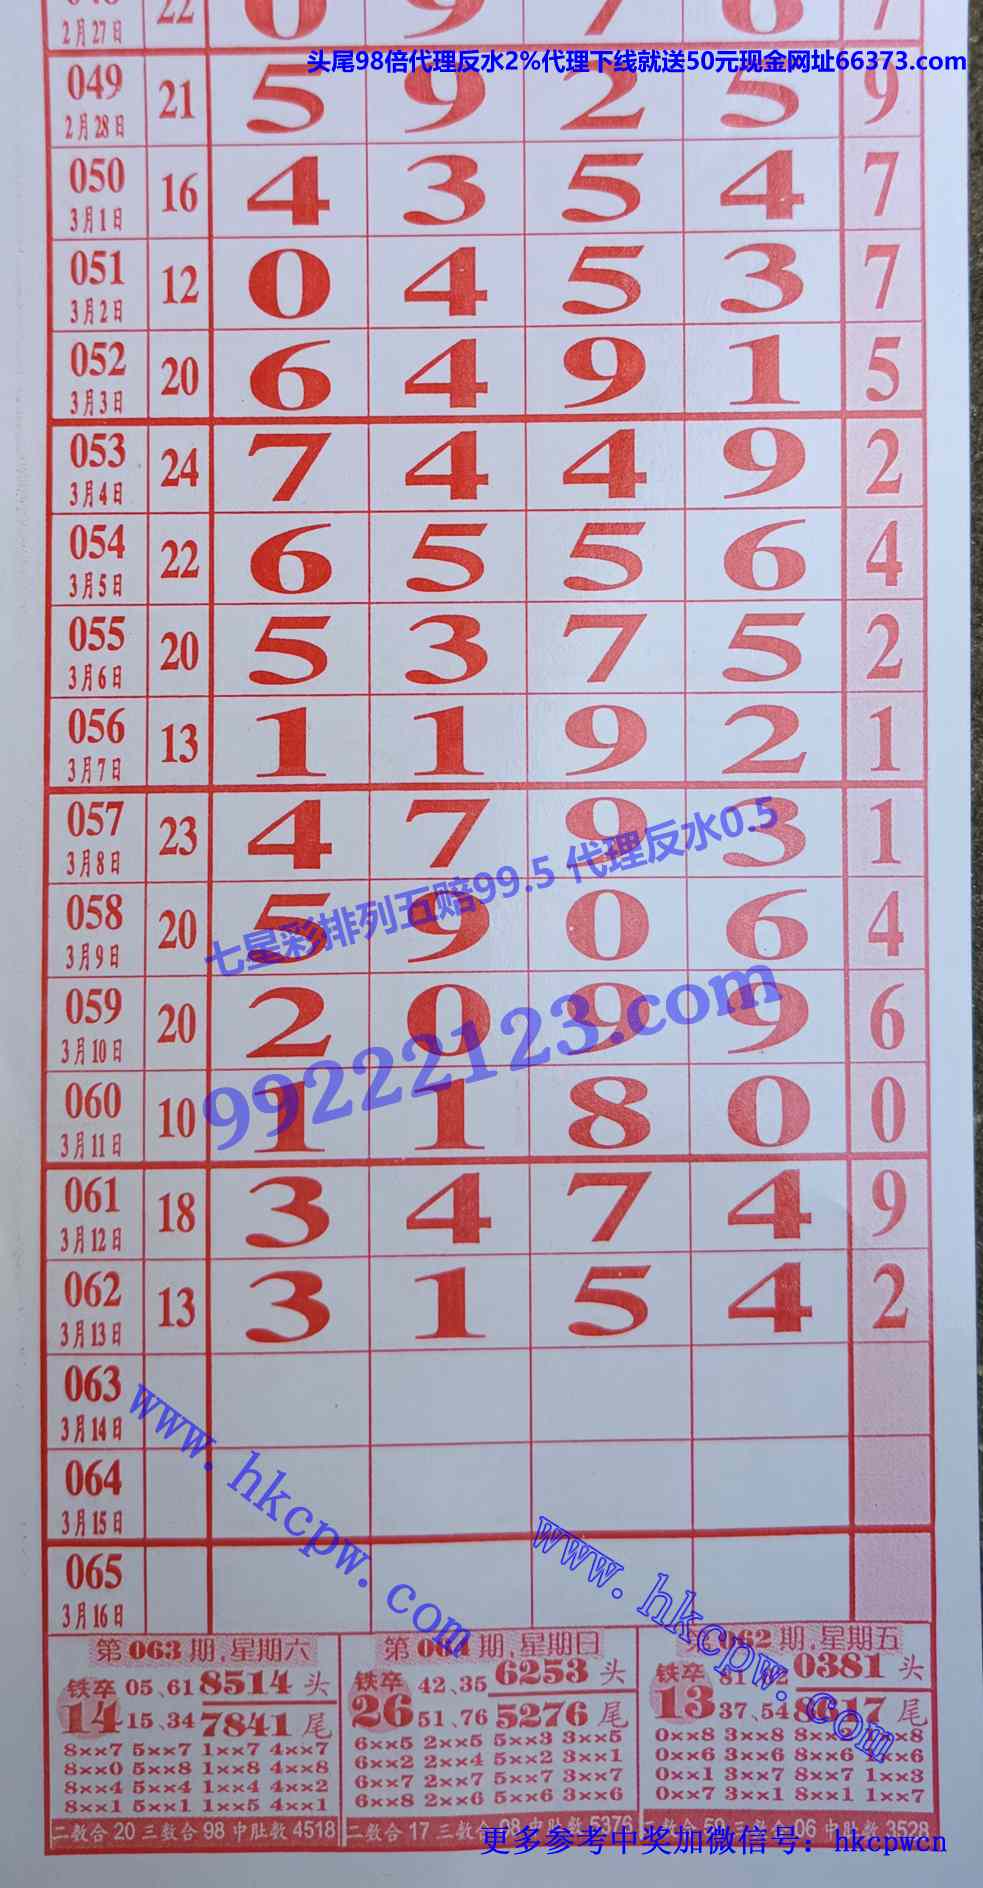 2月27日 22 0 9 7 6 7
头尾98倍代理反水2%代理下线就送50元现金网址66373.com
049 2月28日 21 5 9 2 5 9
050 3月1日 16 4 3 5 4 7
051 3月2日 12 0 4 5 3 7
052 3月3日 20 6 4 9 1 5
053 3月4日 24 7 4 4 9 2
054 3月5日 22 6 5 5 6 4
055 3月6日 20 5 3 7 5 2
056 3月7日 13 1 1 9 2 1
057 3月8日 23 4 7 9 3 1
七星彩排列五赔99.5 代理反水0.5
058 3月9日 20 5 9 0 6 4
059 3月10日 20 2 0 9 9 6
99222123.com
060 3月11日 10 1 1 8 0 0
061 3月12日 18 3 4 7 4 9
062 3月13日 13 3 1 5 4 2
063 3月14日
064 3月15日
065 3月16日
www.hkcpw.com
www.hkcpw.com
第063期,星期六
铁卒 05、61 8514 头
14 15、34 7841 尾
8××7 5××7 1××7 4××7
8××0 5××8 1××8 4××8
8××4 5××4 1××4 4××2
8××1 5××1 1××5 4××1
二数合 20 三数合 98 中肚数 4518
第064期,星期日
铁卒 42、35 6253 头
26 51、76 5276 尾
6××5 2××5 5××3 3××5
6××2 2××4 5××2 3××1
6××7 2××7 5××7 3××7
6××8 2××6 5××6 3××6
二数合 17 三数合 08 中肚数 5376
第062期,星期五
铁卒 0381 头
13 37、54 8617 尾
0××8 3××8 8××8
0××6 3××6 8××6 1××6
0××1 3××7 8××7 1××3
0××7 3××1 8××1 1××7
59 三数合 06 中肚数 3528
更多参考中奖加微信号：hkcpwcn